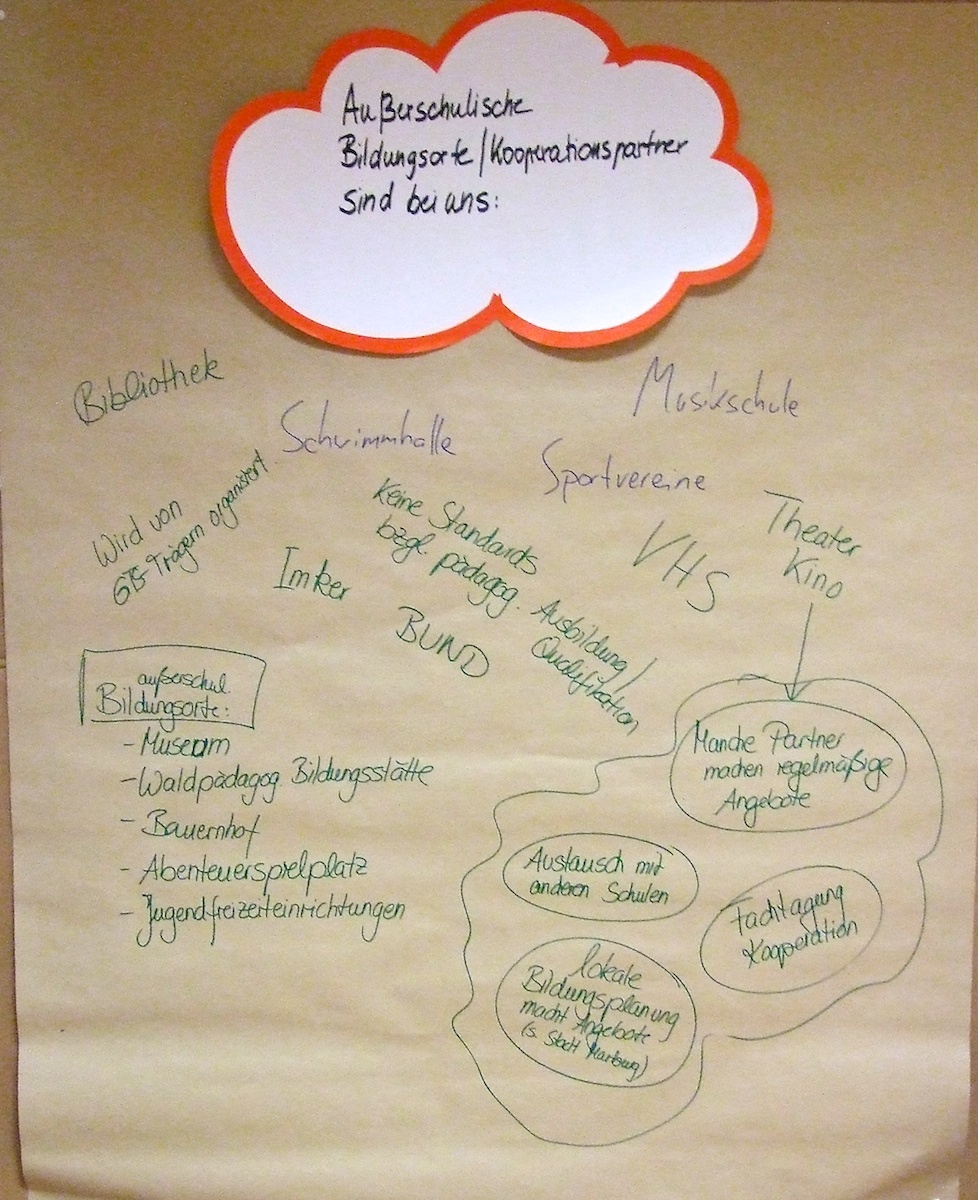 Außerschulische
Bildungsorte/Kooperationspartner
sind bei uns:
Bibliothek
Schwimmhalle
Musikschule
Sportvereine
Wird von
GTS-Trägern organisiert
Keine Standards
bzgl. pädagog. Ausbildung/
Qualifikation
Imker
BUND
VHS
Theater
Kino
außerschul.
Bildungsorte:
- Museum
- Waldpädagog. Bildungsstätte
- Bauernhof
- Abenteuerspielplatz
- Jugendfreizeiteinrichtungen
Manche Partner
machen regelmäßige
Angebote
Austausch mit
anderen Schulen
Fachtagung
Kooperation
lokale
Bildungsplanung
macht Angebote
(s. Stadt Marburg)